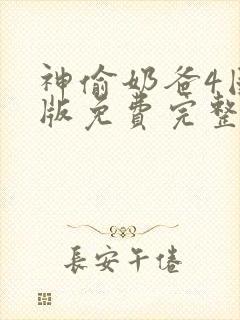 神偷奶爸4
版免费完整
長安午倦